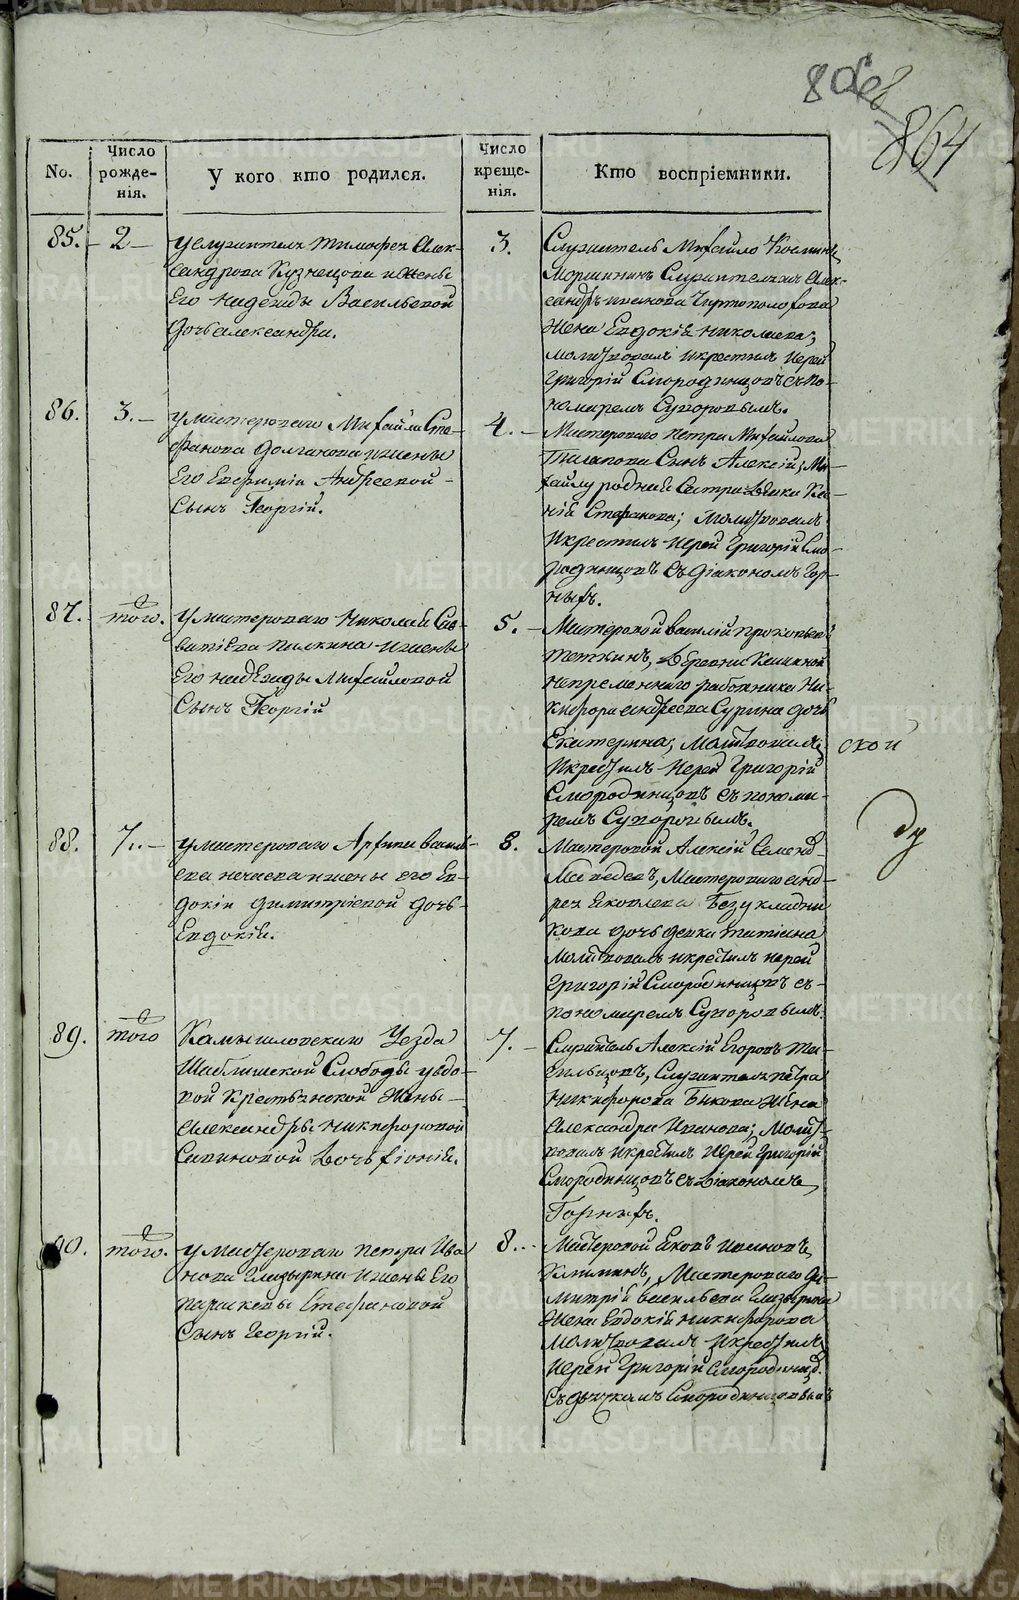 864
No.
Число рожденія.
У кого кто родился.
Число крещенія.
Кто воспріемники.
85.
2
У служителя Тимофея Алек-
сандрова Кузнецова и жены
Его Надежды Васильевой
дочь Александра.
3.
Служитель Михайло Космин
Моршининъ Служителя Алек-
сандръ иванова Чертополохова
жена Евдокія Николаева;
молитвовалъ и крестилъ Иерей
Григорій Смородинцовъ съ по-
номаремъ Суворовымъ.
86.
3.
У мастероваго Михайла Сте-
фанова Долганова и жены
Его Евфиміи Андреевой
Сынъ Георгій.
4.
Мастероваго Петра Михайлова
Сынъ Алексій; Ми-
хайлу родная Сестра девка Ксе-
нія Стефанова; Молитвовалъ
И крестилъ Иерей Григорій Смо-
родинцовъ Съ діакономъ Гор-
ныхъ.
87.
того.
У мастероваго Николая Сав-
ватіева Пилкина и жены
Его Надежды Михайловой
Сынъ Георгій
5.
Мастеровой Василій Прокопьев
Теткинъ, деревни
непременнаго работника Ни-
кифора Андреева Сурина дочь
Екатерина; Молитвовалъ
И крестилъ Иерей Григорій
Смородинцовъ съ понома-
ремъ Суворовымъ.
ской
88.
7.
У мастероваго Архипа Василь-
ева Нечаева и жены его Ев-
докіи Димитріевой дочь
Евдокія.
8.
Мастеровой Алексій Семенов
Медведевъ, Мастероваго Анд-
рея Яковлева Безукладни
кова дочь девка Татіана
Молитвовалъ и крестилъ иерей
Григорій Смородинцовъ съ
пономаремъ Суворовымъ.
89.
того
Камышловскаго Уезда
Шаблишской Слободы у вдо-
вой Крестьянской жены
Александры Никифоровой
Савиновой дочь Фіонія.
7.
Служитель Алексій Егоровъ
Служителя Петра
Никифорова Быкова жена
Александра Иванова; Молит-
вовалъ и крестилъ Иерей Григорій
Смородинцовъ съ діакономъ
Горныхъ.
90.
того.
У Мастероваго Петра Ива
нова Глазырина и жены Его
Параскевы Стефановой
Сынъ Георгій.
8.
Мастеровой Яковъ Ивановъ
Климинъ, Мастероваго Ди-
митрія Васильева Глазырина
жена Евдокія Никифорова
Молитвовалъ И крестилъ
Иерей Григорій Смородинцов.
Съ дьячкомъ Смородинцовымъ
METRIKI.GASO-URAL.RU